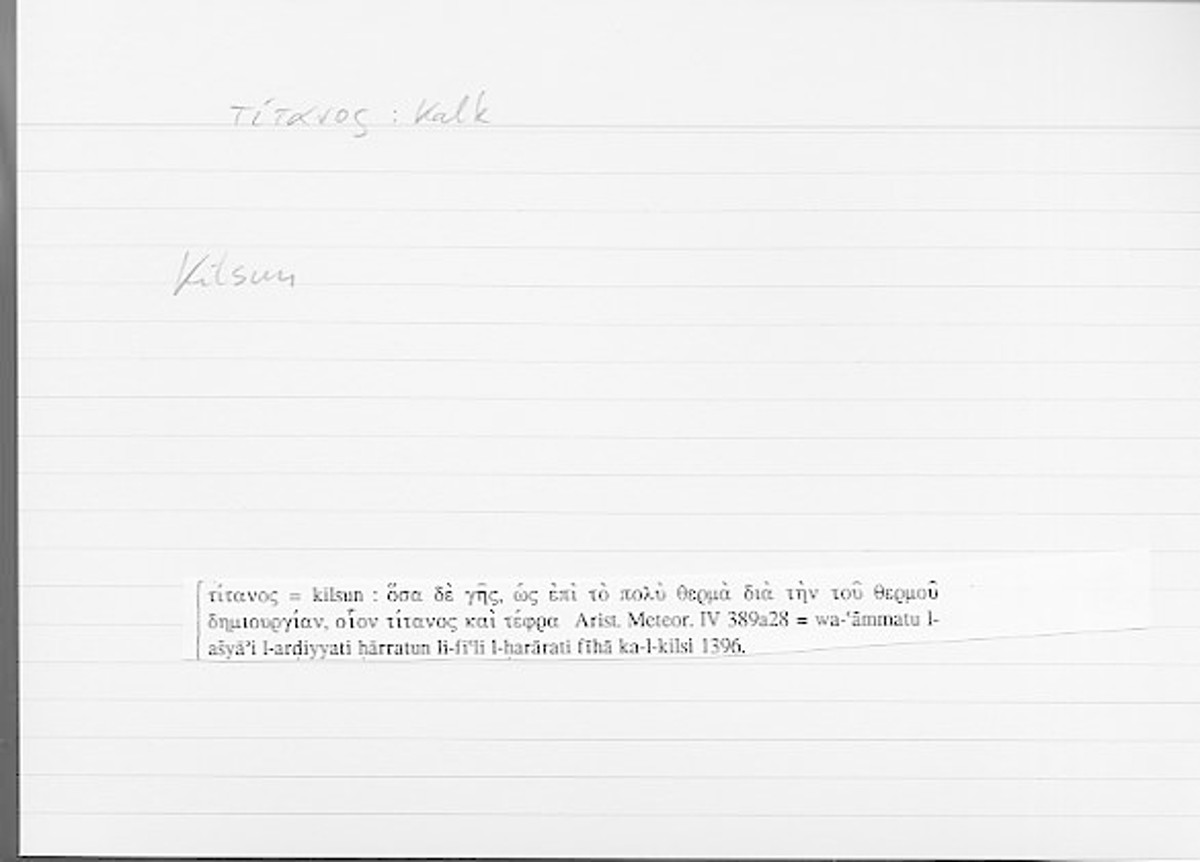 τίτανος : Kalk
Kilsun
τίτανος = kilsun : ὅσα δὲ γῆς, ὡς ἐπὶ τὸ πολὺ θερμὰ διὰ τὴν τοῦ θερμοῦ
δημιουργίαν, οἷον τίτανος καὶ τέφρα Arist. Meteor. IV 389a28 = wa-ʿāmmatu l-
ašyāʾi l-arḍiyyati ḥārratun li-fiʿli l-ḥarārati fīhā ka-l-kilsi 1396.